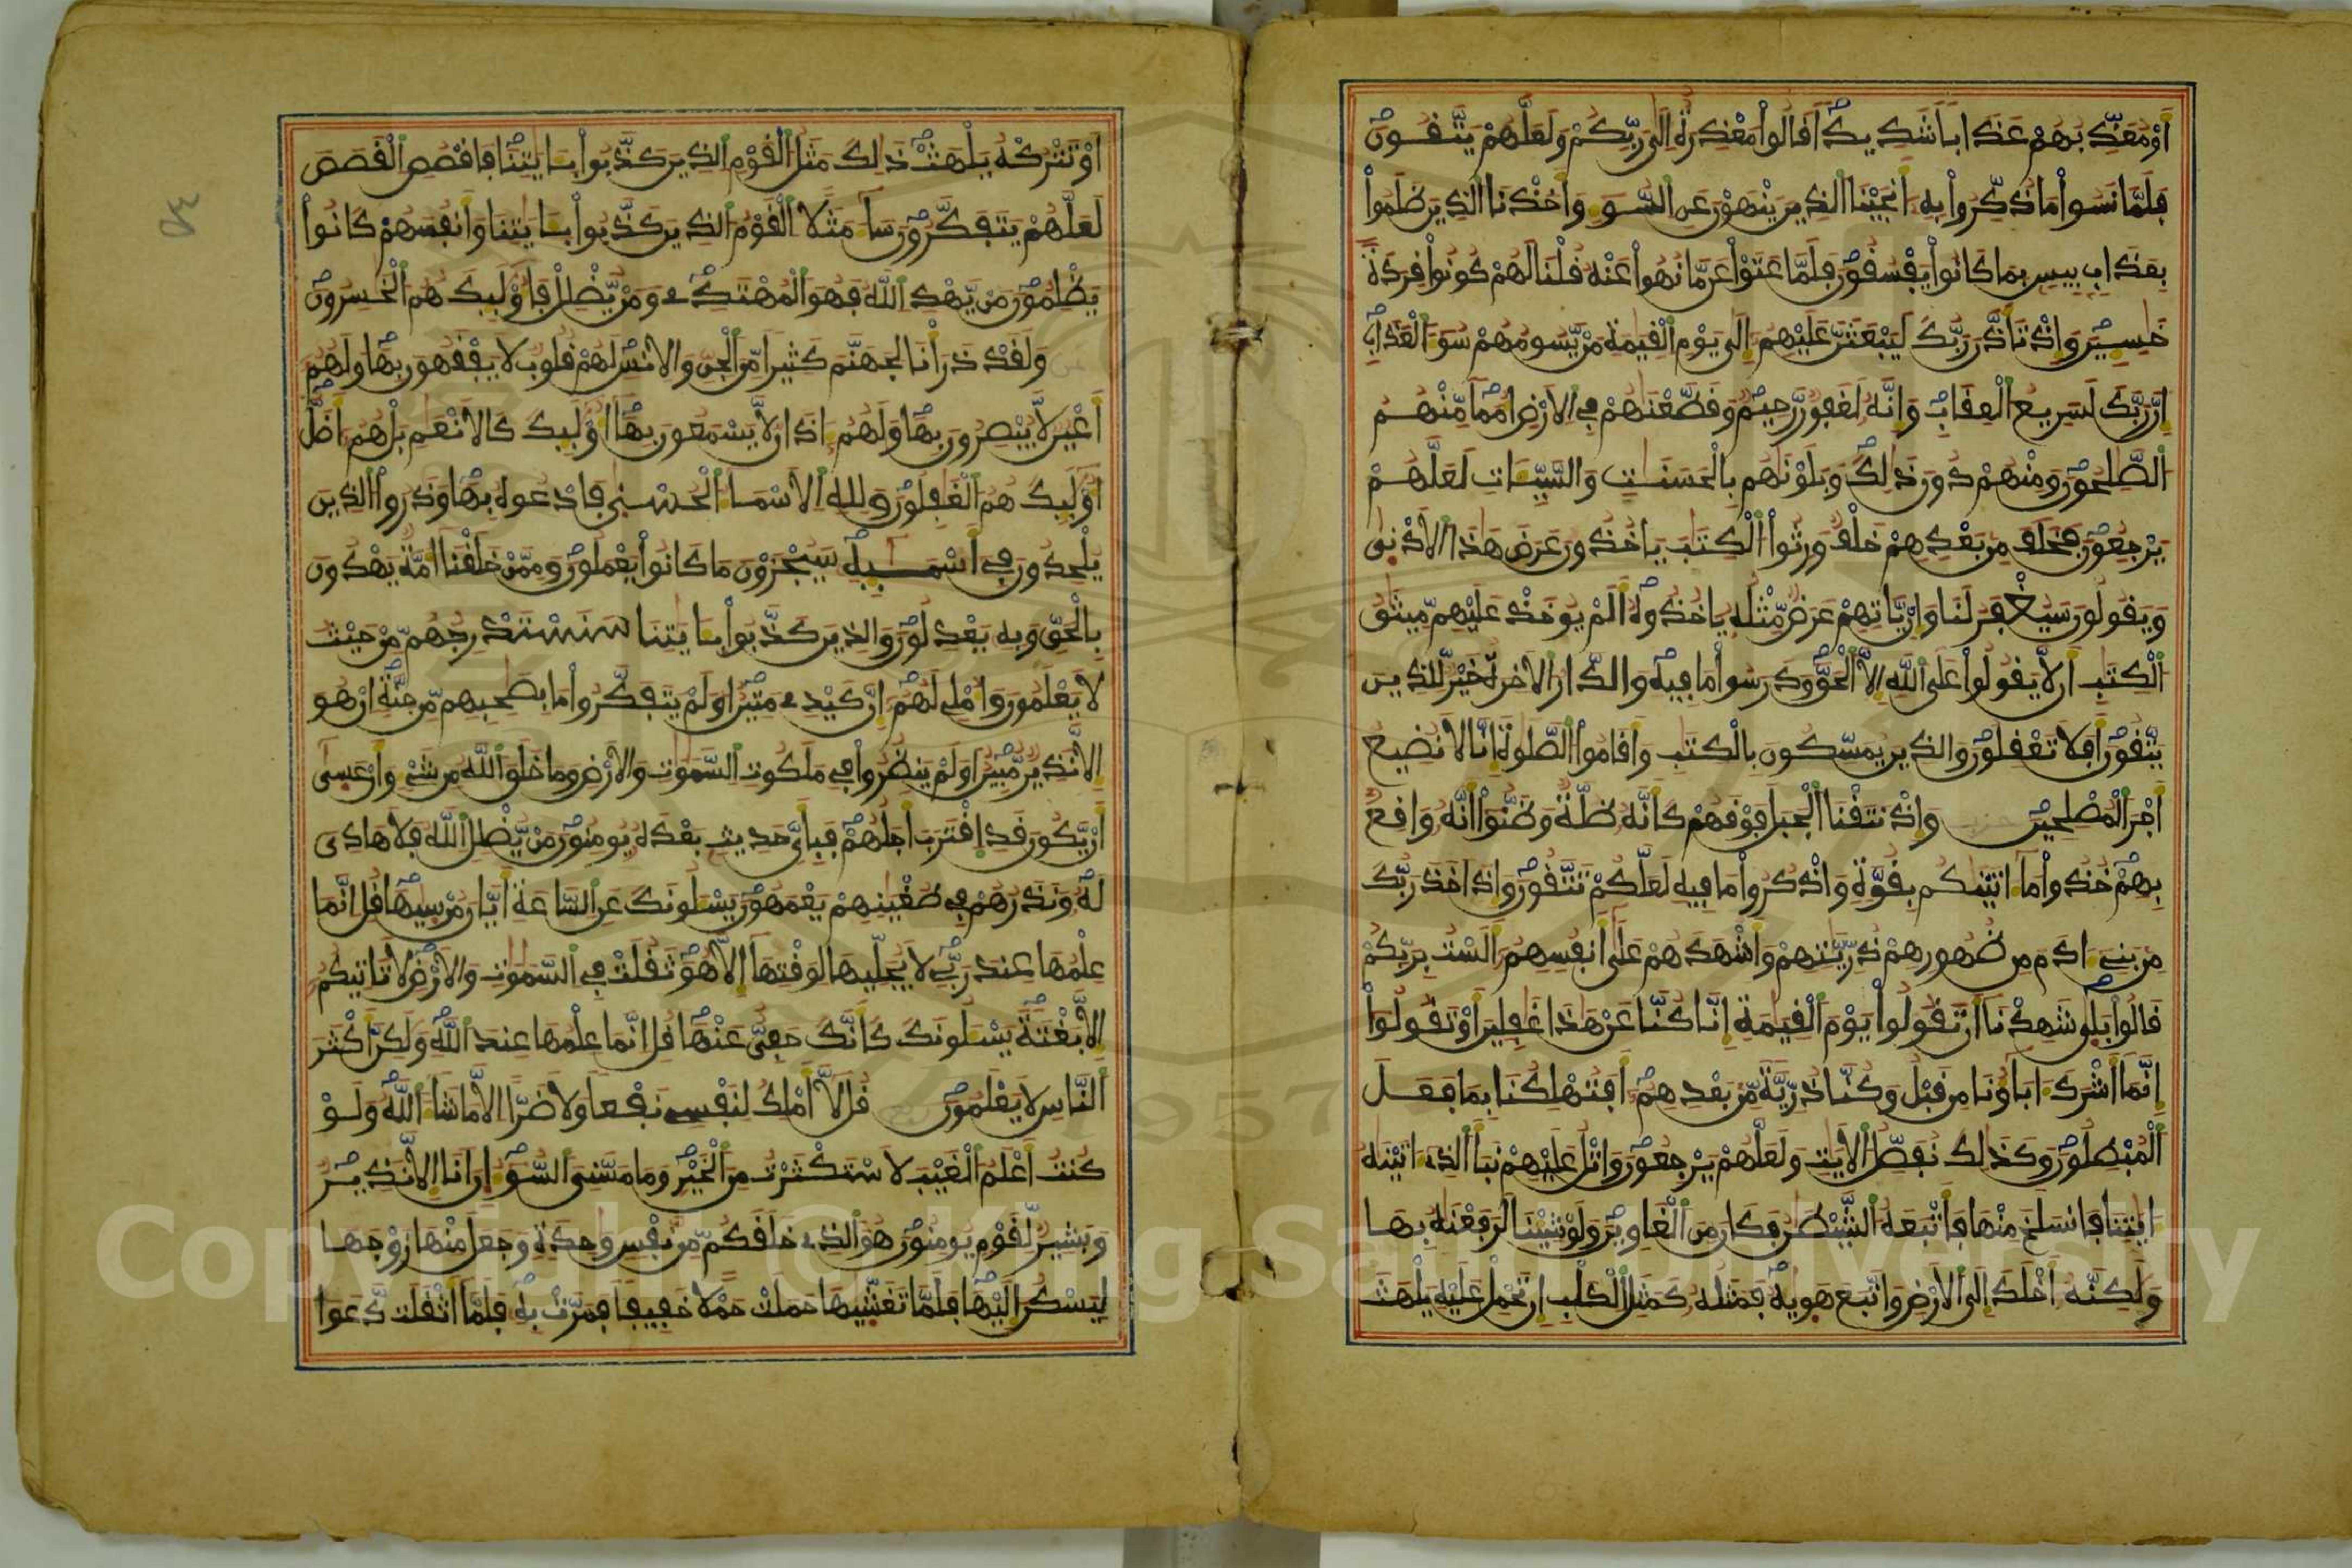 أَوْ مُعَذِّبُهُمْ عَذَابًا شَدِيدًا قَالُوا مَعْذِرَةٌ إِلَى رَبِّكُمْ وَلَعَلَّهُمْ يَتَّقُونَ
فَلَمَّا نَسُوا مَا ذُكِّرُوا بِهِ أَنجَيْنَا الذِينَ يَنْهَوْنَ عَنِ السُّوءِ وَأَخَذْنَا الذِينَ ظَلَمُوا
بِعَذَابٍ بِيسٍ بِمَا كَانُوا يَفْسُقُونَ فَلَمَّا عَتَوْا عَن مَّا نُهُوا عَنْهُ قُلْنَا لَهُمْ كُونُوا قِرَدَةً
خَسِيِنَ وَإِذْ تَأَذَّنَ رَبُّكَ لَيَبْعَثَنَّ عَلَيْهِمُ إِلَى يَوْمِ الْقِيَمَةِ مَنْ يَّسُومُهُمْ سُوءَ الْعَذَابِ
إِنَّ رَبَّكَ لَسَرِيعُ الْعِقَابِ وَإِنَّهُ لَغَفُورٌ رَّحِيمٌ وَقَطَّعْنَاهُمْ فِي الَارْضِ أُمَمًا مِّنْهُمُ
الصَّلِحُونَ وَمِنْهُمْ دُونَ ذَلِكَ وَبَلَوْنَاهُم بِالْحَسَنَتِ وَالسَّيِّئَاتِ لَعَلَّهُمْ
يَرْجِعُونَ فَخَلَفَ مِن بَعْدِهِمْ خَلْفٌ وَرِثُوا الْكِتَبَ يَاخُذُونَ عَرَضَ هَذَا الَادْنَى
وَيَقُولُونَ سَيُغْفَرُ لَنَا وَإِنْ يَّاتِهِمْ عَرَضٌ مِّثْلُهُ يَاخُذُوهُ أَلَمْ يُوخَذْ عَلَيْهِم مِّيثَقُ
الْكِتَبِ أَن لَّا يَقُولُوا عَلَى اللَّهِ إِلَّا الْحَقَّ وَدَرَسُوا مَا فِيهِ وَالدَّارُ الَاخِرَةُ خَيْرٌ لِّلذِينَ
يَتَّقُونَ أَفَلَا تَعْقِلُونَ وَالذِينَ يُمَسِّكُونَ بِالْكِتَبِ وَأَقَامُوا الصَّلَوةَ إِنَّا لَا نُضِيعُ
أَجْرَ الْمُصْلِحِينَ وَإِذْ نَتَقْنَا الْجَبَلَ فَوْقَهُمْ كَأَنَّهُ ظُلَّةٌ وَظَنُّوا أَنَّهُ وَاقِعٌ
بِهِمْ خُذُوا مَا ءَاتَيْنَكُم بِقُوَّةٍ وَاذْكُرُوا مَا فِيهِ لَعَلَّكُمْ تَتَّقُونَ وَإِذَ اخَذَ رَبُّكَ
مِن بَنِي ءَادَمَ مِن ظُهُورِهِمْ ذُرِّيَّتِهِمْ وَأَشْهَدَهُمْ عَلَى أَنفُسِهِمُ أَلَسْتُ بِرَبِّكُمْ
قَالُوا بَلَى شَهِدْنَا أَن تَقُولُوا يَوْمَ الْقِيَمَةِ إِنَّا كُنَّا عَنْ هَذَا غَفِلِينَ أَوْ تَقُولُوا
إِنَّمَا أَشْرَكَ ءَابَاؤُنَا مِن قَبْلُ وَكُنَّا ذُرِّيَّةً مِّن بَعْدِهِمُ أَفَتُهْلِكُنَا بِمَا فَعَلَ
الْمُبْطِلُونَ وَكَذَلِكَ نُفَصِّلُ الَايَتِ وَلَعَلَّهُمْ يَرْجِعُونَ وَاتْلُ عَلَيْهِمْ نَبَأَ الذِي ءَاتَيْنَهُ
ءَايَتِنَا فَانسَلَخَ مِنْهَا فَأَتْبَعَهُ الشَّيْطَنُ فَكَانَ مِنَ الْغَاوِينَ وَلَوْ شِيْنَا لَرَفَعْنَهُ بِهَا
وَلَكِنَّهُ أَخْلَدَ إِلَى الَارْضِ وَاتَّبَعَ هَوِيهُ فَمَثَلُهُ كَمَثَلِ الْكَلْبِ إِن تَحْمِلْ عَلَيْهِ يَلْهَثَ
أَوْ تَتْرُكْهُ يَلْهَثْ ذَلِكَ مَثَلُ الْقَوْمِ الذِينَ كَذَّبُوا بِـَايَتِنَا فَاقْصُصِ الْقَصَصَ
لَعَلَّهُمْ يَتَفَكَّرُونَ سَاءَ مَثَلًا الْقَوْمُ الذِينَ كَذَّبُوا بِـَايَتِنَا وَأَنفُسَهُمْ كَانُوا
يَظْلِمُونَ مَنْ يَّهْدِ اللَّهُ فَهُوَ الْمُهْتَدِي وَمَنْ يُّضْلِلْ فَأُوْلَئِكَ هُمُ الْخَسِرُونَ
وَلَقَدْ ذَرَأْنَا لِجَهَنَّمَ كَثِيرًا مِّنَ الْجِنِّ وَالِانسِ لَهُمْ قُلُوبٌ لَا يَفْقَهُونَ بِهَا وَلَهُمُ
أَعْيُنٌ لَّا يُبْصِرُونَ بِهَا وَلَهُمُ ءَاذَانٌ لَّا يَسْمَعُونَ بِهَا أُوْلَئِكَ كَالَانْعَمِ بَلْ هُمُ أَضَلُّ
أُوْلَئِكَ هُمُ الْغَفِلُونَ وَلِلهِ الَاسْمَاءُ الْحُسْنَى فَادْعُوهُ بِهَا وَذَرُوا الذِينَ
يُلْحِدُونَ فِي أَسْمَـئِهِ سَيُجْزَوْنَ مَا كَانُوا يَعْمَلُونَ وَمِمَّنْ خَلَقْنَا أُمَّةٌ يَهْدُونَ
بِالْحَقِّ وَبِهِ يَعْدِلُونَ وَالذِينَ كَذَّبُوا بِـَايَتِنَا سَنَسْتَدْرِجُهُم مِّنْ حَيْثُ
لَا يَعْلَمُونَ وَأُمْلِي لَهُمُ إِنَّ كَيْدِي مَتِينٌ أَوَلَمْ يَتَفَكَّرُوا مَا بِصَحِبِهِم مِّن جِنَّةٍ إِنْ هُوَ
إِلَّا نَذِيرٌ مُّبِينٌ أَوَلَمْ يَنظُرُوا فِي مَلَكُوتِ السَّمَوَتِ وَالَارْضِ وَمَا خَلَقَ اللَّهُ مِن شَيْءٍ وَأَنْ عَسَى
أَنْ يَّكُونَ قَدِ اقْتَرَبَ أَجَلُهُمْ فَبِأَيِّ حَدِيثٍ بَعْدَهُ يُومِنُونَ مَنْ يُّضْلِلِ اللَّهُ فَلَا هَادِيَ
لَهُ وَنَذَرُهُمْ فِي طُغْيَنِهِمْ يَعْمَهُونَ يَسْـَلُونَكَ عَنِ السَّاعَةِ أَيَّانَ مُرْسَيهَا قُلِ انَّمَا
عِلْمُهَا عِندَ رَبِّي لَا يُجَلِّيهَا لِوَقْتِهَا إِلَّا هُوَ ثَقُلَتْ فِي السَّمَوَتِ وَالَارْضِ لَا تَاتِيكُمُ
إِلَّا بَغْتَةً يَسْـَلُونَكَ كَأَنَّكَ حَفِيٌّ عَنْهَا قُلِ انَّمَا عِلْمُهَا عِندَ اللَّهِ وَلَكِنَّ أَكْثَرَ
النَّاسِ لَا يَعْلَمُونَ قُل لَّا أَمْلِكُ لِنَفْسِي نَفْعًا وَلَا ضَرًّا إِلَّا مَا شَاءَ اللَّهُ وَلَوْ
كُنتُ أَعْلَمُ الْغَيْبَ لَاسْتَكْثَرْتُ مِنَ الْخَيْرِ وَمَا مَسَّنِيَ السُّوءُ إِنَ انَا إِلَّا نَذِيرٌ
وَبَشِيرٌ لِّقَوْمٍ يُومِنُونَ هُوَ الذِي خَلَقَكُم مِّن نَّفْسٍ وَاحِدَةٍ وَجَعَلَ مِنْهَا زَوْجَهَا
لِيَسْكُنَ إِلَيْهَا فَلَمَّا تَغَشَّيهَا حَمَلَتْ حَمْلًا خَفِيفًا فَمَرَّتْ بِهِ فَلَمَّا أَثْقَلَت دَّعَوَا
Copyright © King Saud University
1957